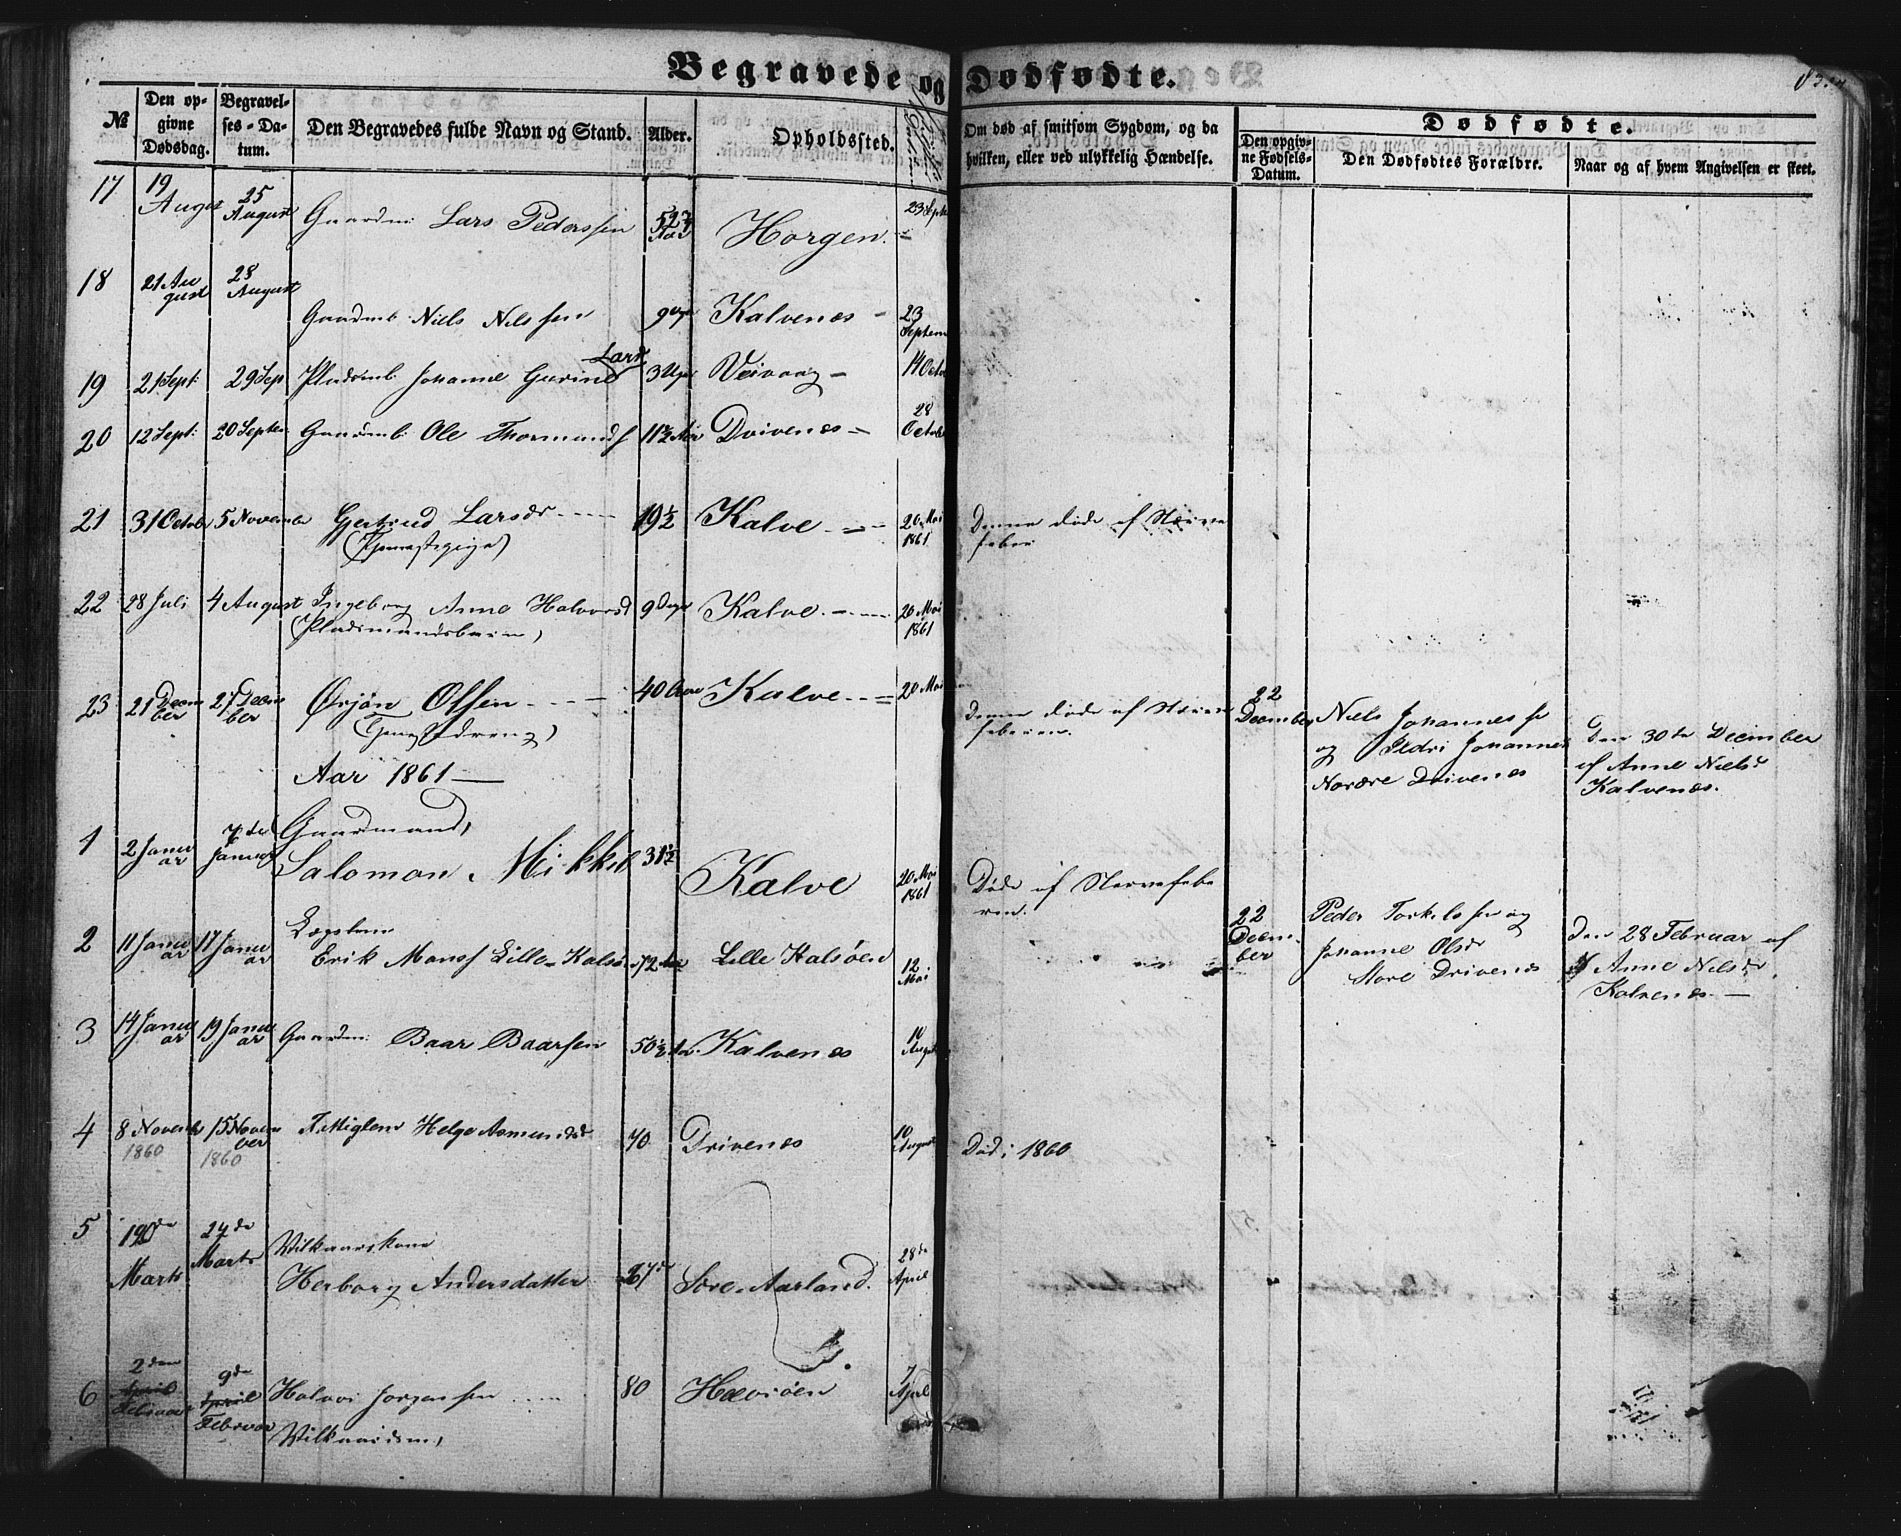 Begravede og Dødfødte.
№
Den opgivne Dødsdag.
Begravelses-Datum.
Den Begravedes fulde Navn og Stand.
Alder.
Opholdssted.
Om død af smitsom Sygdom, og da hvilken, eller ved ulykkelig Hændelse.
Dødfødte.
Den opgivne Fødsels-Datum.
Den Dødfødtes Forældre.
Naar og af hvem Angivelsen er skeet.
17 19 August 25 August Gaardm: Lars Pederssen 52 Horgen. 23 Septe
18 21 August 28 August Gaardmb: Niels Nilssen 9 Uger Kalvenes 23 Septem
19 21 Sept: 29 Sep Pladsmb: Johanne Gurine Larsd 3 Uger Veivaag 14 Octo
20 12 Sept: 20 Septem Gaardmb: Ole Thormunds 11½ Aar Drivenes 28 Octob
21 31 Octob 5 Novemb Gjertrud Larsdr 19½ Kalve 20 Mai 1861 Denne døde af Nerve
(Tjenestepige) feber
22 28 Juli 4 August Ingeborg Anna Halvorsd 9 Dage Kalve 20 Mai 1861
(Pladsmandsbarn)
23 21 December 27 December Ørjan Olssen 40 Aar Kalve 20 Mai Denne døde af Nerve
(Tjenestedreng) feberen.
22 December Niels Johannes sen
og Pedri Johannes
Nordre Drivenes
Den 30te December
af Anne Nielsd
Kalvenes.
Aar 1861
1 2 Januar 7de Januar Gaardmand,
Salomon Mikkels 31½ Kalve 20 Mai 1861 Døde af Nervefebe
ren.
2 11 Januar 17 Januar Lægdslem
Erik Monss Lille-Kalsøen 72 Aar Lille Kalsøen 12 Mai
22 December Peder Torkelssen og
Johanne Olsdr
Store Drivenes
den 28 Februar af
Anne Nilsdr
Kalvenes.
3 14 Januar 19 Januar Gaardm: Baar Baarsen 50½ Aar Kalvenes 10 August
4 8 November 1860 15 November 1860 Fattiglem Helge Asmundsd 70 Drivenes 10 August Død i 1860
5 19de Marts 24de Marts Vilkaarskone
Herborg Andersdatter 67 Søre-Aarland. 28de April
6 2den April Februar 9de April Februar Halvor Jørgenssen 80 Hævrøen 7 April
Vilkaarsm,